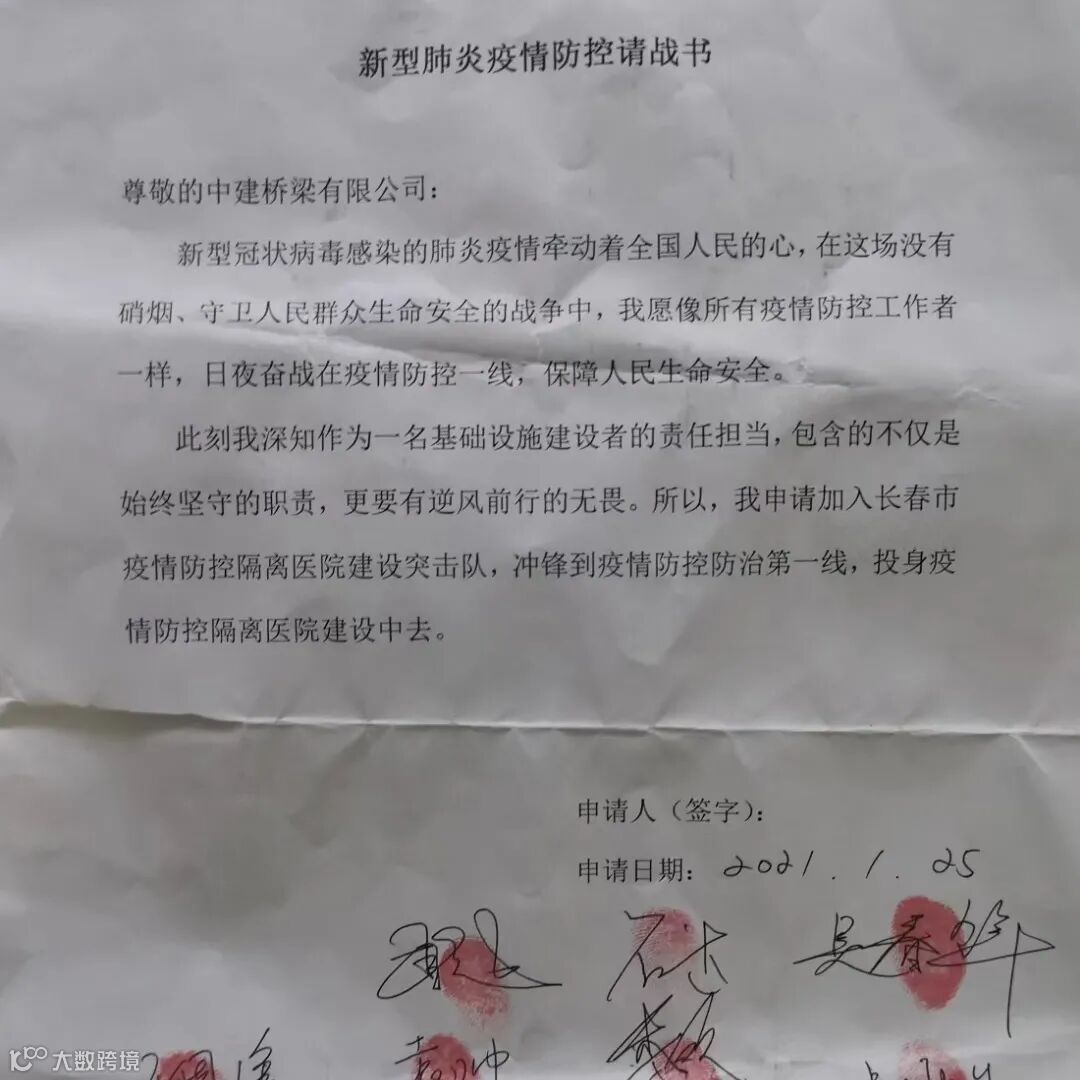 新型肺炎疫情防控请战书
尊敬的中建桥梁有限公司：
新型冠状病毒感染的肺炎疫情牵动着全国人民的心，在这场没有
硝烟、守卫人民群众生命安全的战争中，我愿像所有疫情防控工作者
一样，日夜奋战在疫情防控一线，保障人民生命安全。
此刻我深知作为一名基础设施建设者的责任担当，包含的不仅是
始终坚守的职责，更要有逆风前行的无畏。所以，我申请加入长春市
疫情防控隔离医院建设突击队，冲锋到疫情防控防治第一线，投身疫
情防控隔离医院建设中去。
申请人（签字）：
申请日期：2021.1.25
吴春华
大数跨境